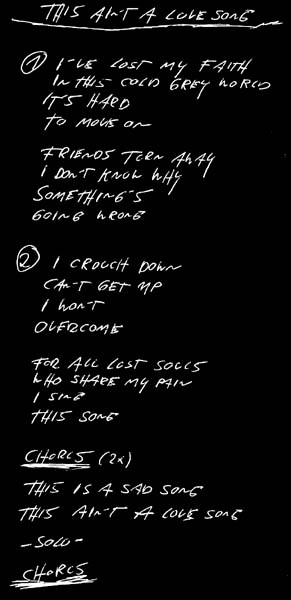 THIS AIN'T A LOVE SONG
① I'VE LOST MY FAITH
IN THIS COLD GREY WORLD
IT'S HARD
TO MOVE ON
FRIENDS TURN AWAY
I DON'T KNOW WHY
SOMETHING'S
GOING WRONG
② I CROUCH DOWN
CAN'T GET UP
I WON'T
OVERCOME
FOR ALL LOST SOULS
WHO SHARE MY PAIN
I SING
THIS SONG
CHORUS (2x)
THIS IS A SAD SONG
THIS AIN'T A LOVE SONG
- SOLO -
CHORUS